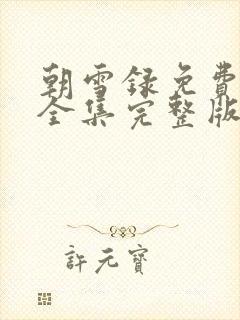 朝雪録免費
全集完整版
許元寶